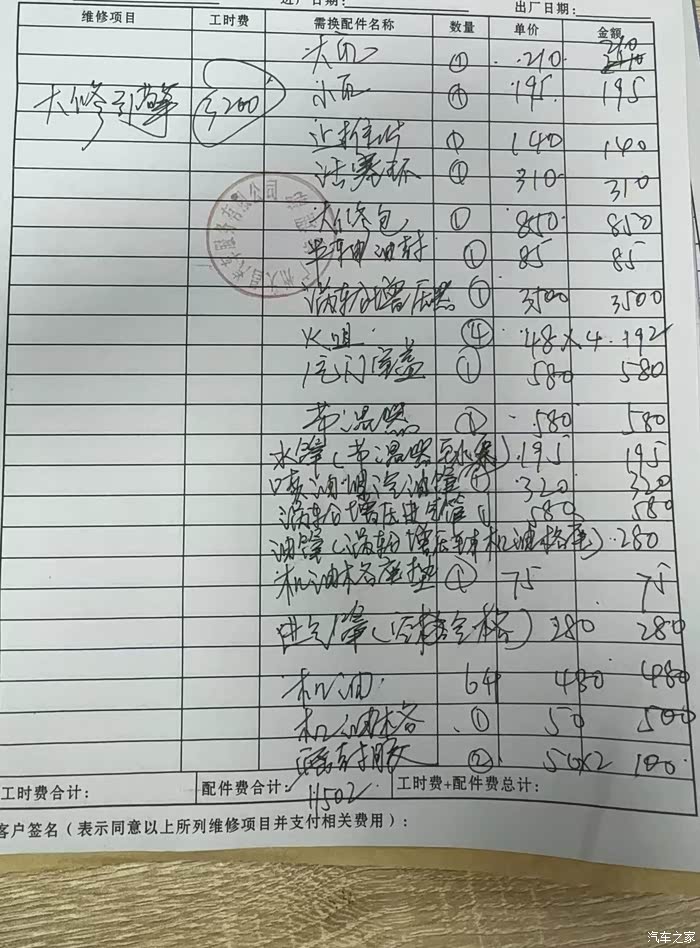 进厂日期: 出厂日期:
维修项目 工时费 需换配件名称 数量 单价 金额
大瓦 ① 210 210
大修引擎 3200 小瓦 ① 195 195
止推片 ① 140 140
活塞环 ① 310 310
大修包 ① 850 850
半车油封 ① 85 85
涡轮增压器 ① 3500 3500
火咀 ④ 48×4 192
气门室盖 ① 580 580
节温器 ① 580 580
水管(节温器至水泵) 195 195
喷油咀汽油管 ① 320 320
涡轮增压进气管 ① 580 580
油管(涡轮增压至机油格座) 280
机油格座垫 ① 75 75
进气管(冷格空格) 280 280
机油 480 480
机油格 ① 50 500
密封胶 ② 50×2 100
工时费合计: 配件费合计: 11502 工时费+配件费总计:
客户签名(表示同意以上所列维修项目并支付相关费用):
汽车之家